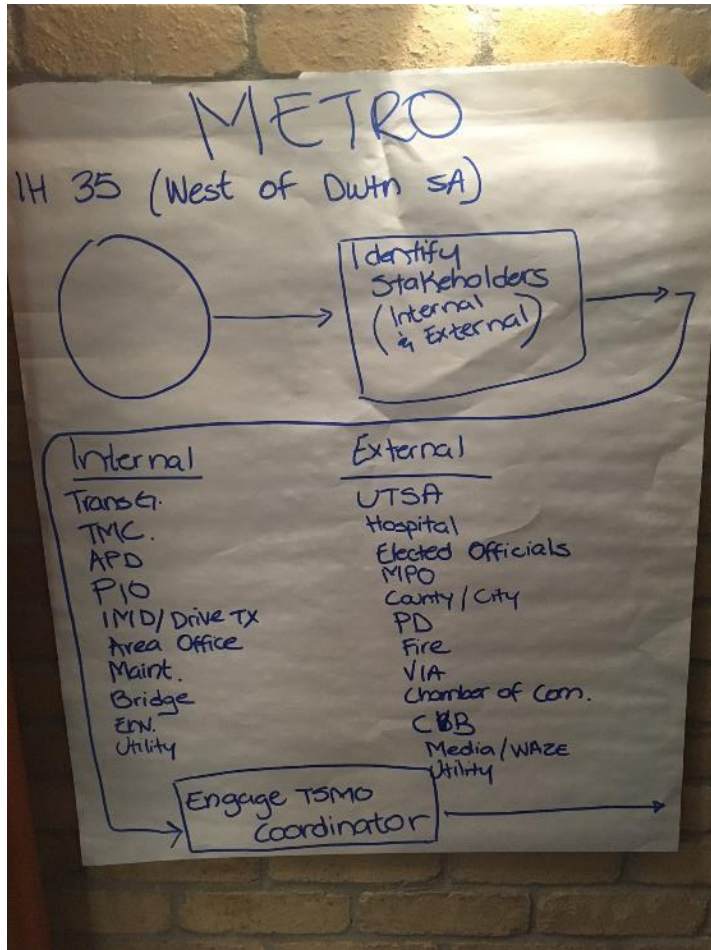 METRO
IH 35 (West of Dwtn SA)
Identify
Stakeholders
(Internal
& External)
Internal
TransG.
TMC.
APD
PIO
IMD/Drive TX
Area Office
Maint.
Bridge
Env.
Utility
External
UTSA
Hospital
Elected Officials
MPO
County/City
PD
Fire
VIA
Chamber of Com.
Media/WAZE
Utility
Engage TSMO
Coordinator